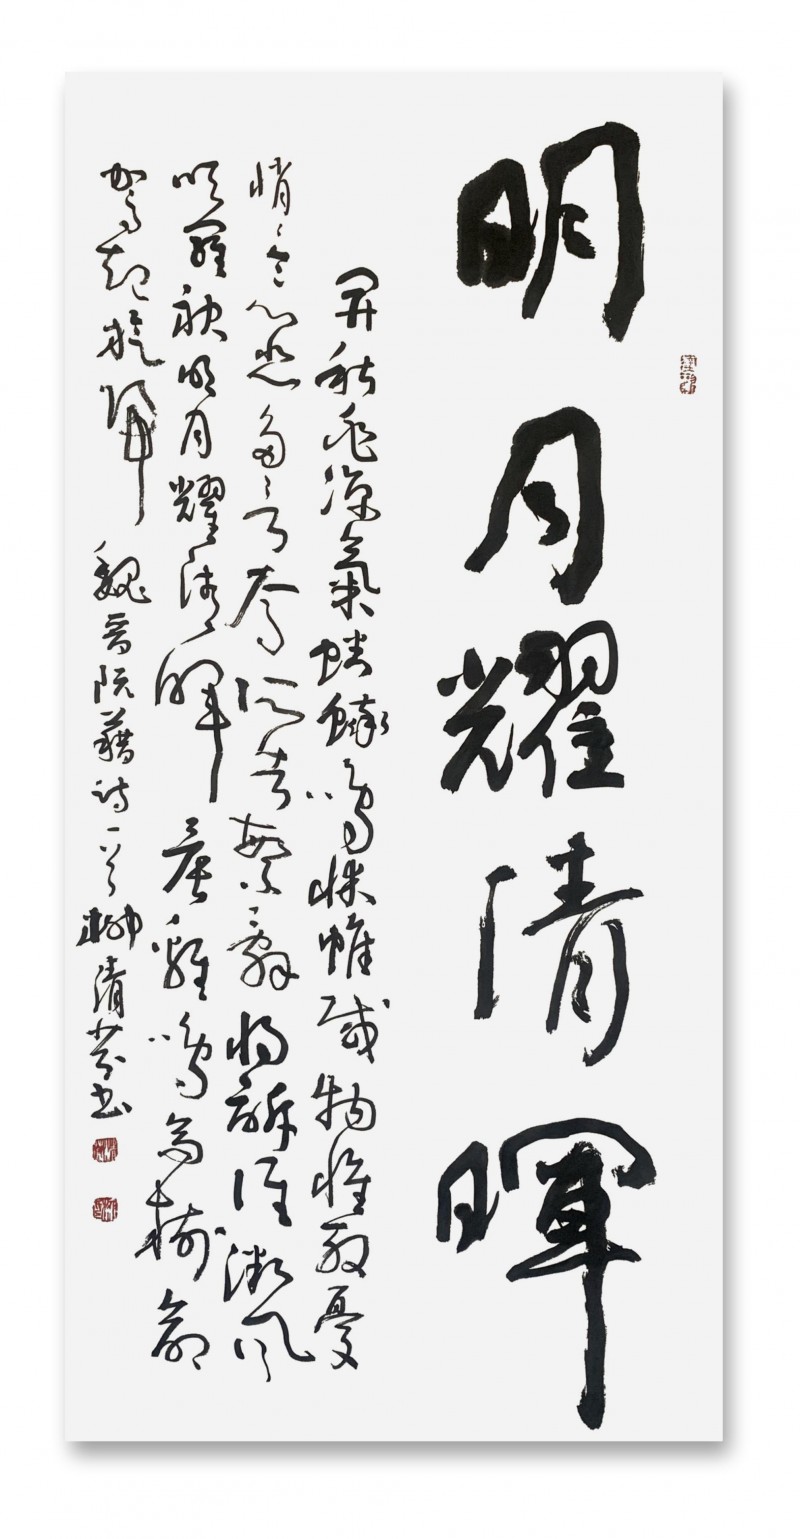 明月耀清暉
開秋兆涼氣蟋蟀鳴牀帷感物懷殷憂
悄々令心悲多言焉所告繁辭將訴誰微風
吹羅袂明月耀清暉晨雞鳴高樹命
駕起旋歸 魏晉阮藉詩一首 柳清芬书